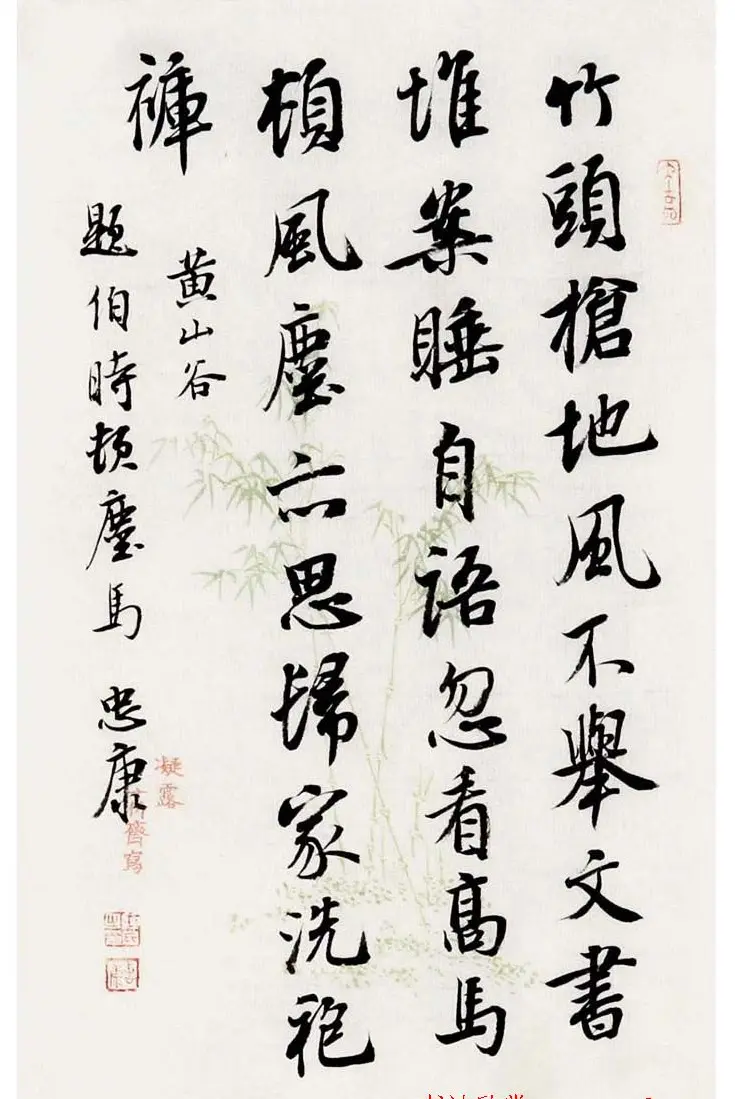 竹頭槍地風不舉文書
堆案睡自語忽看高馬
頓風塵亦思歸家洗袍
褲
黃山谷
題伯時頓塵馬 忠康
凝露
齊寫